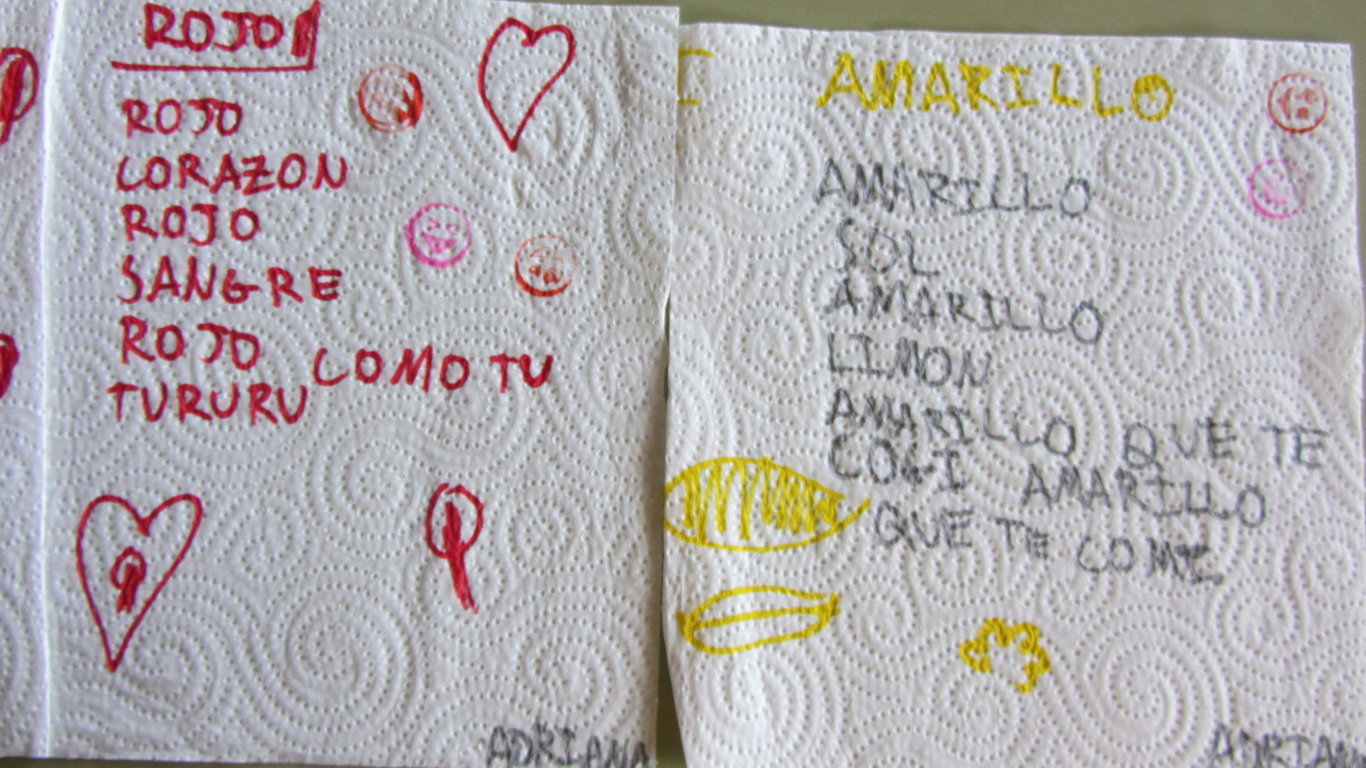 ROJO
ROJO
CORAZON
ROJO
SANGRE
ROJO COMO TU
TURURU
ADRIANA
AMARILLO
AMARILLO
SOL
AMARILLO
LIMON
AMARILLO QUE TE
COGI AMARILLO
QUE TE COMI
ADRIAN